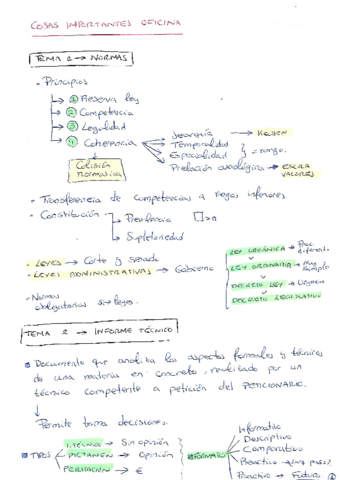 COSAS IMPORTANTES OFICINA
TEMA 1 → NORMAS
- Principios
① Reserva ley
② Competencia
③ Legalidad
④ Coherencia
Jerarquía → KELSEN
Temporalidad
Especialidad } = rango.
Prelación axiológica → ESCALA VALORES
Colisión normativa
- Transferencia de competencias a rangos inferiores
- Constitución
Prevalencia
Supletoriedad
- LEYES → Corte y senado
- LEYES ADMINISTRATIVAS → Gobierno
LEY ORGÁNICA → Proc. diferent.
LEY ORDINARIA → Muy simple
DECRETO LEY → Urgencia
DECRETO LEGISLATIVO
- Normas obligatorias sin leyes.
TEMA 2 → INFORME TÉCNICO
Documento que analiza los aspectos formales y técnicos
de una materia en concreto, realizado por un
técnico competente a petición del PETICIONARIO.
↓
Permite toma decisiones.
TIPOS
I. TÉCNICO → Sin opinión
DICTAMEN → Opinión
PERITACIÓN → €
FORMATO
Informativo
Descriptivo
Comparativo
Proactivo → Futuro